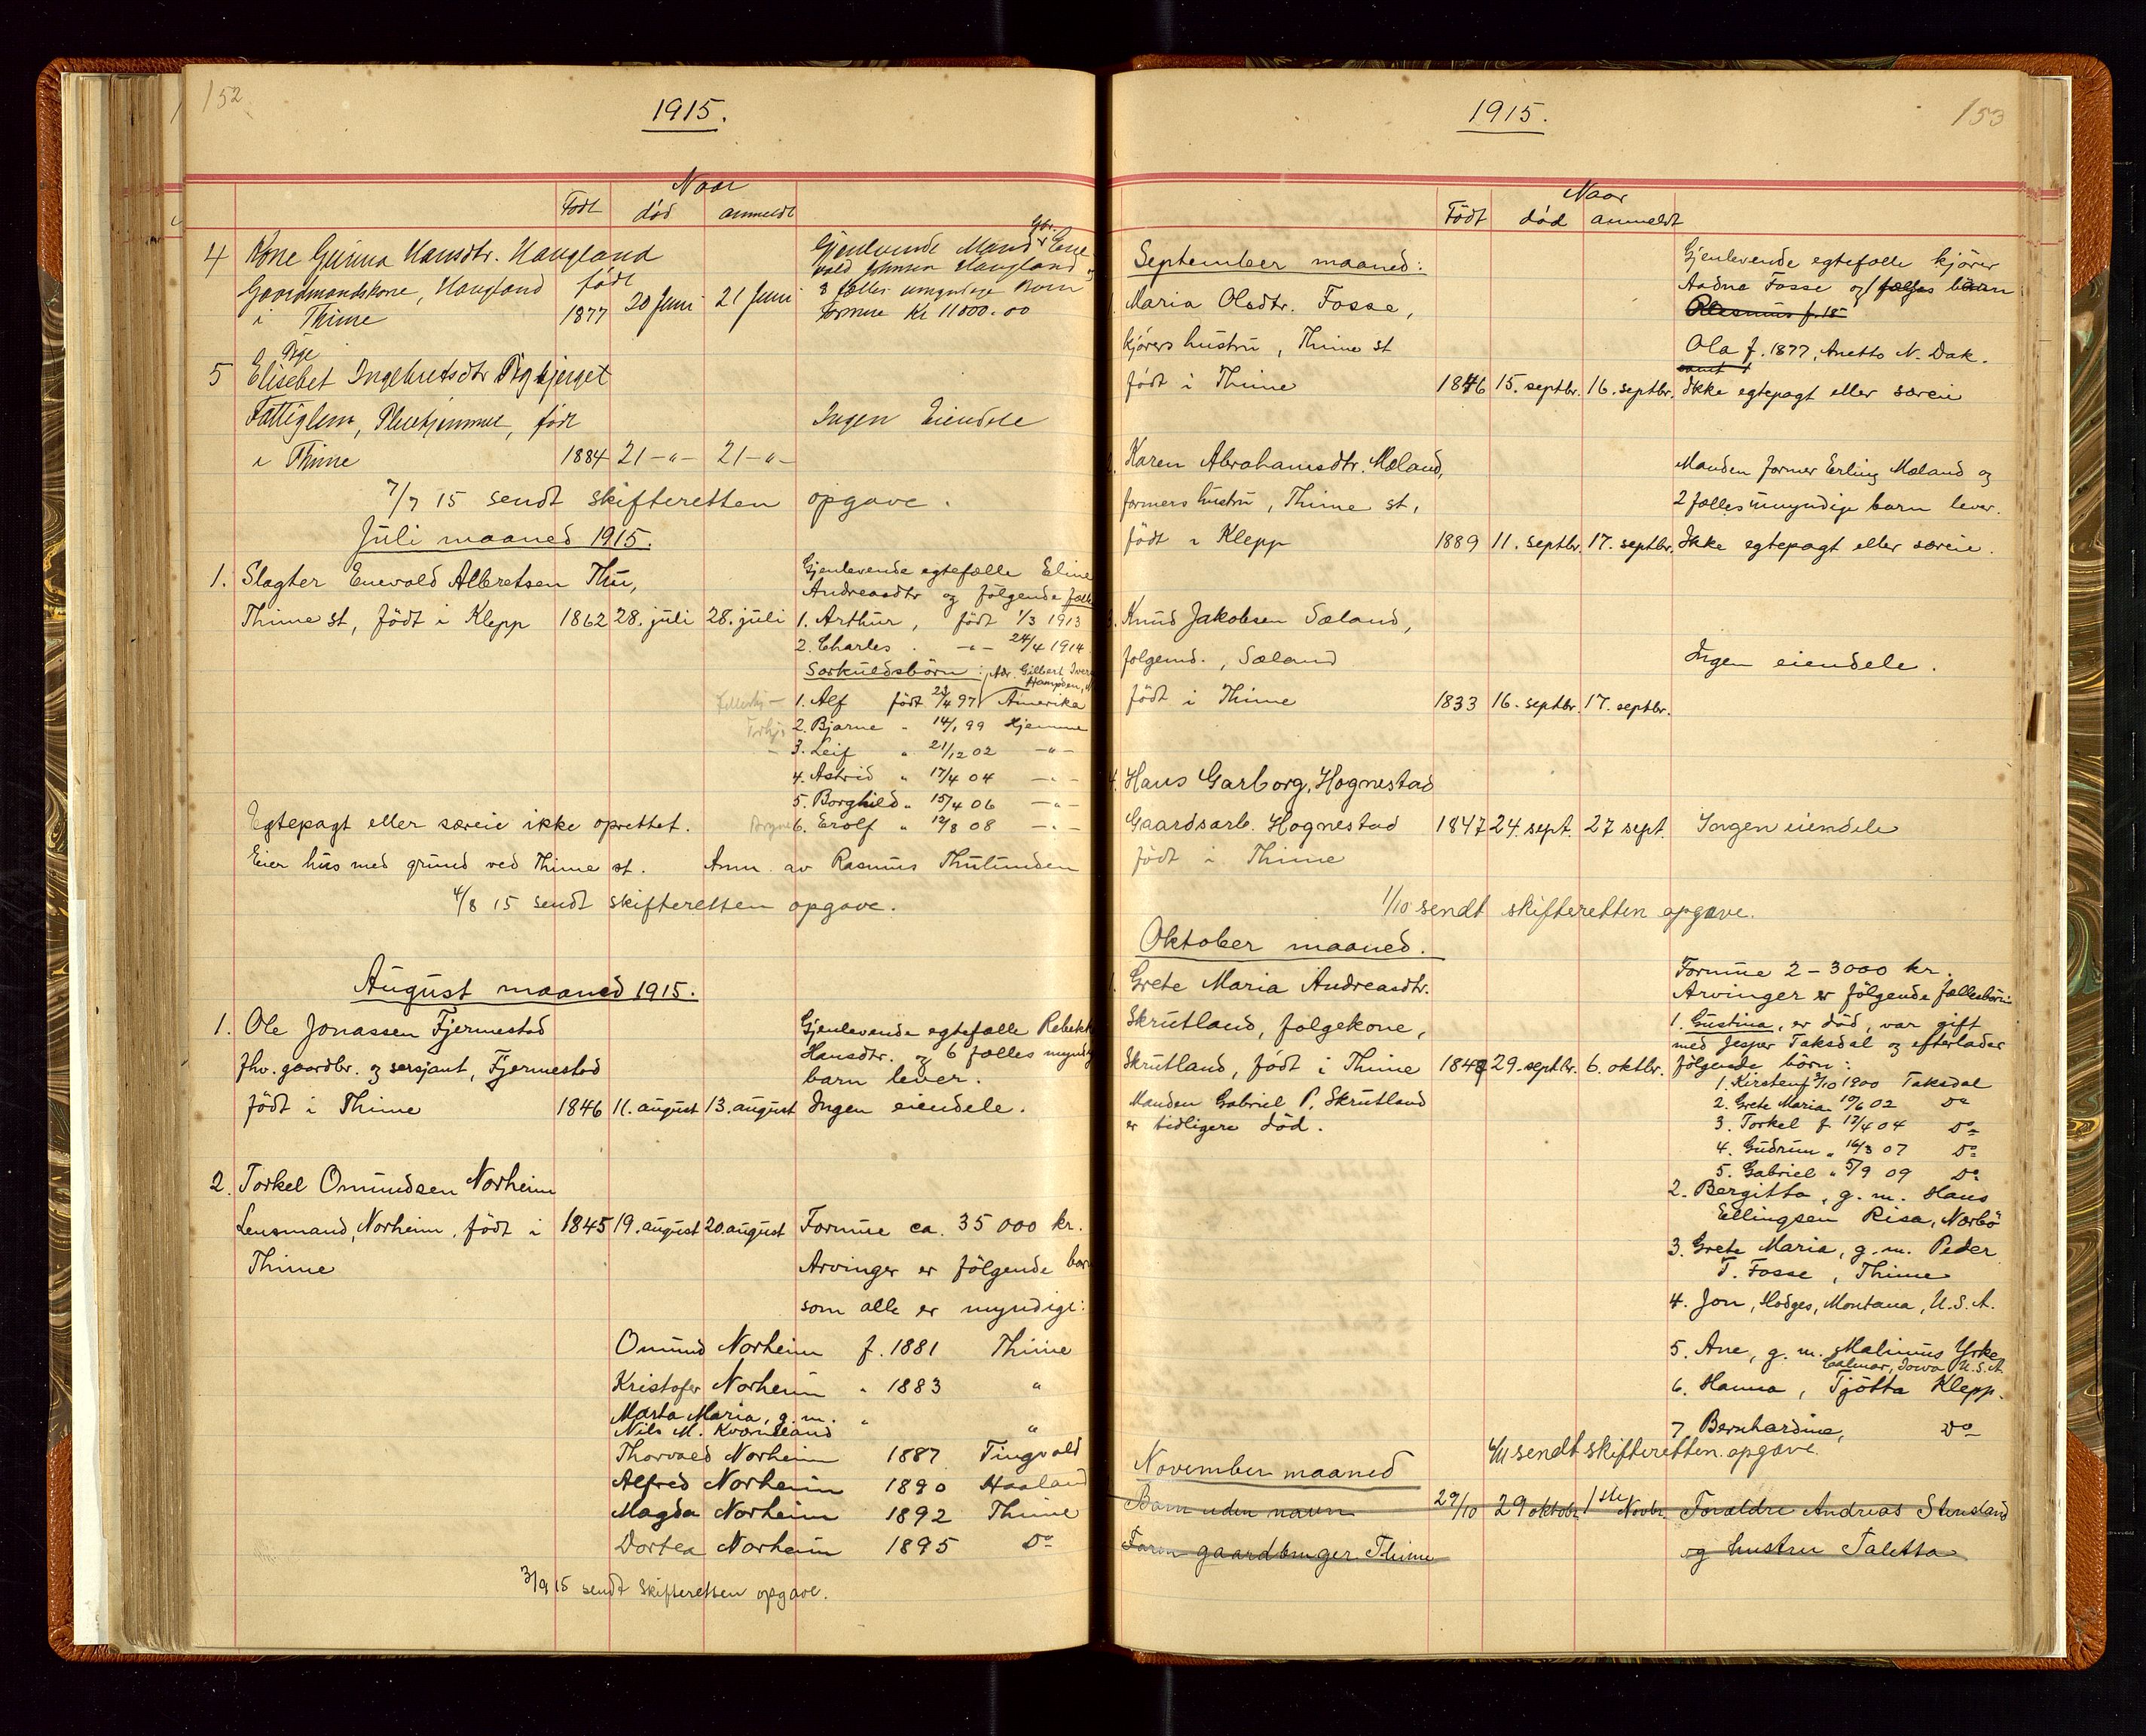 152
1915.
Naar
Född død anmeldt
4 Kone Gurina Hansdtr. Haugland
Gaardmandskone, Haugland født
i Thime 1877 20 Juni 21 Juni
Gjenlevende Mand Gbr. Ene-
vold Haugland og
3 fælles umyndige Børn
formue Kr 11000.00
5 Elisebet Ingebretsdtr
Fattiglem, Pleiehjemmet, født
i Thime 1884 21 -"- 21 -"-
Ingen Eiendele
7/7 15 sendt skifteretten opgave.
Juli maaned 1915.
1. Slagter Enevold Albretsen Thu,
Thime st, født i Klepp 1862 28. juli 28. juli
Gjenlevende egtefælle Eline
Andreasdtr og følgende
1. Arthur, født 1/3 1913
2. Charles. -"- 24/4 1914
Særkuldsbørn: Adr. Gilbert
Hampden,
1. Alf født 29/4 97 Amerika
2. Bjarne " 14/1 99 Hjemme
3. Leif " 21/12 02 -"-
4. Astrid " 17/4 04 -"-
5. Borghild " 15/4 06 -"-
Egtepagt eller særeie ikke oprettet.
6. Erolf " 12/8 08 -"-
Eier hus med grund ved Thime st. Anm. av Rasmus Thulunden
4/8 15 sendt skifteretten opgave.
August maaned 1915.
1. Ole Jonassen Fjermestad
fhv. gaardbr. og sersjant, Fjermestad
født i Thime 1846 11. august 13. august
Gjenlevende egtefælle
Hansdtr. og 6 fælles
barn lever.
Ingen eiendele.
2. Torkel Omundsen Norheim
Lensmand, Norheim, født i 1845 19. august 20. august
Thime
Formue ca. 35 000 kr.
Arvinger er følgende
som alle er myndige:
Omund Norheim f. 1881 Thime
Kristofer Norheim " 1883 "
Marta Maria, g.m. "
Nils M. Kværneland "
Thorvald Norheim 1887 Tingvold
Alfred Norheim 1890 Haaland
Magda Norheim 1892 Thime
Dortea Norheim 1895 Do
3/9 15 sendt skifteretten opgave.
1915.
153
Naar
Født død anmeldt
September maaned:
1. Maria Olsdtr. Fosse,
kjørers hustru, Thime st
født i Thime 1846 15. septbr. 16. septbr.
Gjenlevende egtefælle kjører
Aadne Fosse og fælles barn
Rasmus f. 18
Ola f. 1877, Anetto N. Dak.
samt
Ikke egtepagt eller særeie
2. Karen Abrahamsdtr. Mæland,
formers hustru, Thime st,
født i Klepp 1889 11. septbr. 17. septbr.
Manden former Erling Mæland og
2 fælles umyndige barn lever.
Ikke egtepagt eller særeie.
3. Knud Jakobsen Sæland,
følgemd., Sæland
født i Thime 1833 16. septbr. 17. septbr.
Ingen eiendele.
4. Hans Garborg, Hognestad
Gaardsarb. Hognestad 1847 24. sept. 27 sept. Ingen eiendele
født i Thime
1/10 sendt skifteretten opgave.
Oktober maaned.
1. Grete Maria Andreasdtr.
Skrutland, følgekone,
Skrutland, født i Thime 1849 29. septbr. 6. oktbr.
Manden Gabriel P. Skrutland
er tidligere død.
Formue 2-3000 kr.
Arvinger er følgende fællesbørn
1. Gustina, er død, var gift
med Jesper Taksdal og efterlader
følgende børn:
1. Kirsten f 3/10 1900 Taksdal
2. Grete Maria 19/6 02 Do
3. Torkel f. 17/4 04 Do
4. Gudrun " 16/3 07 Do
5. Gabriel " 5/9 09 Do
2. Bergitta, g.m. Hans
Ellingsen Risa, Nærbø
3. Grete Maria, g.m. Peder
T. Fosse, Thime
4. Jon, Hodges, Montana, U.S.A.
5. Ane, g.m. Malinus Yrke
Calmar, Iowa U.S.A.
6. Hanna, Tjøtta Klepp.
7 Bernhardine, Do
6/11 sendt skifteretten opgave.
November maaned
Barn uden navn 29/10 29 oktobr. 1ste Novbr. Forældre Andreas Stensland
Faren gaardbruger Thime og hustru Taletta